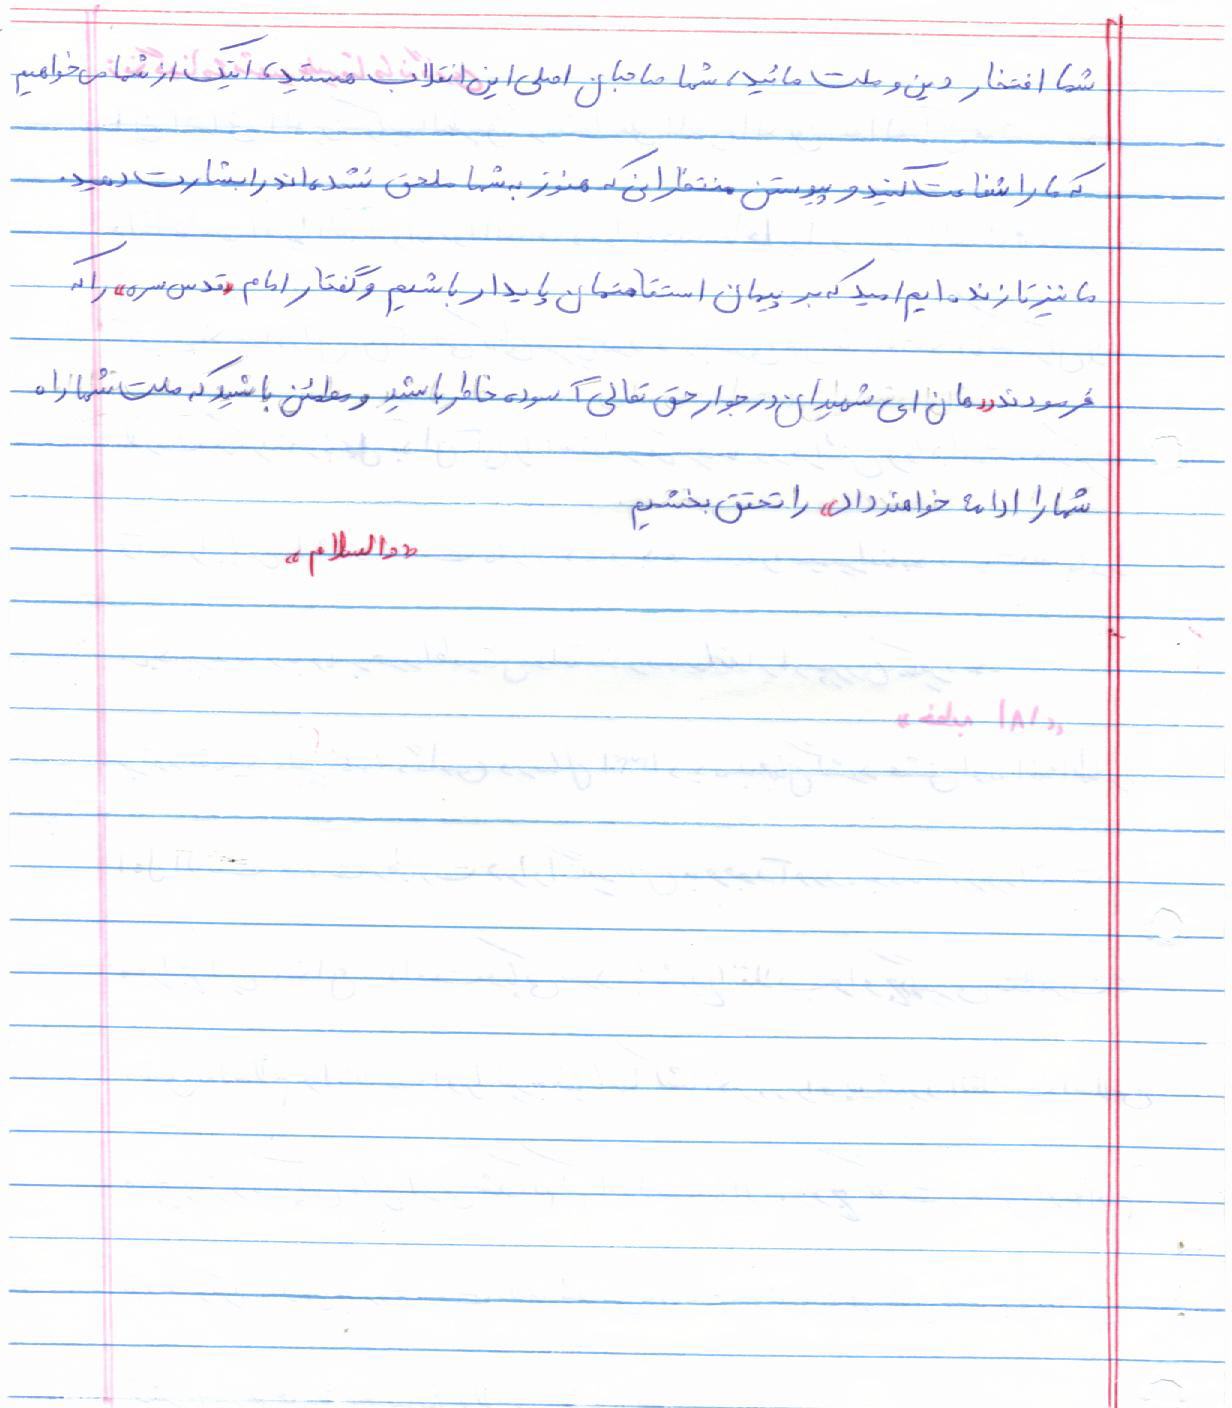 شما افتخار دین و ملت مائید، شما صاحبان اصلی این انقلاب هستید، اینک از شما می خواهیم
که ما را شفاعت کنید و پیوستن منتظرانی که هنوز به شما ملحق نشده اند را بشارت دهید.
ما نیز تا زنده ایم امید که بر پیمان استقامتمان پایدار باشیم و گفتار امام «قدس سره» را که
فرمودند «هان ای شهیدان در جوار حق تعالی آسوده خاطر باشید و مطمئن باشید که ملت شما راه
شما را ادامه خواهند داد» را تحقق بخشیم
«والسلام»